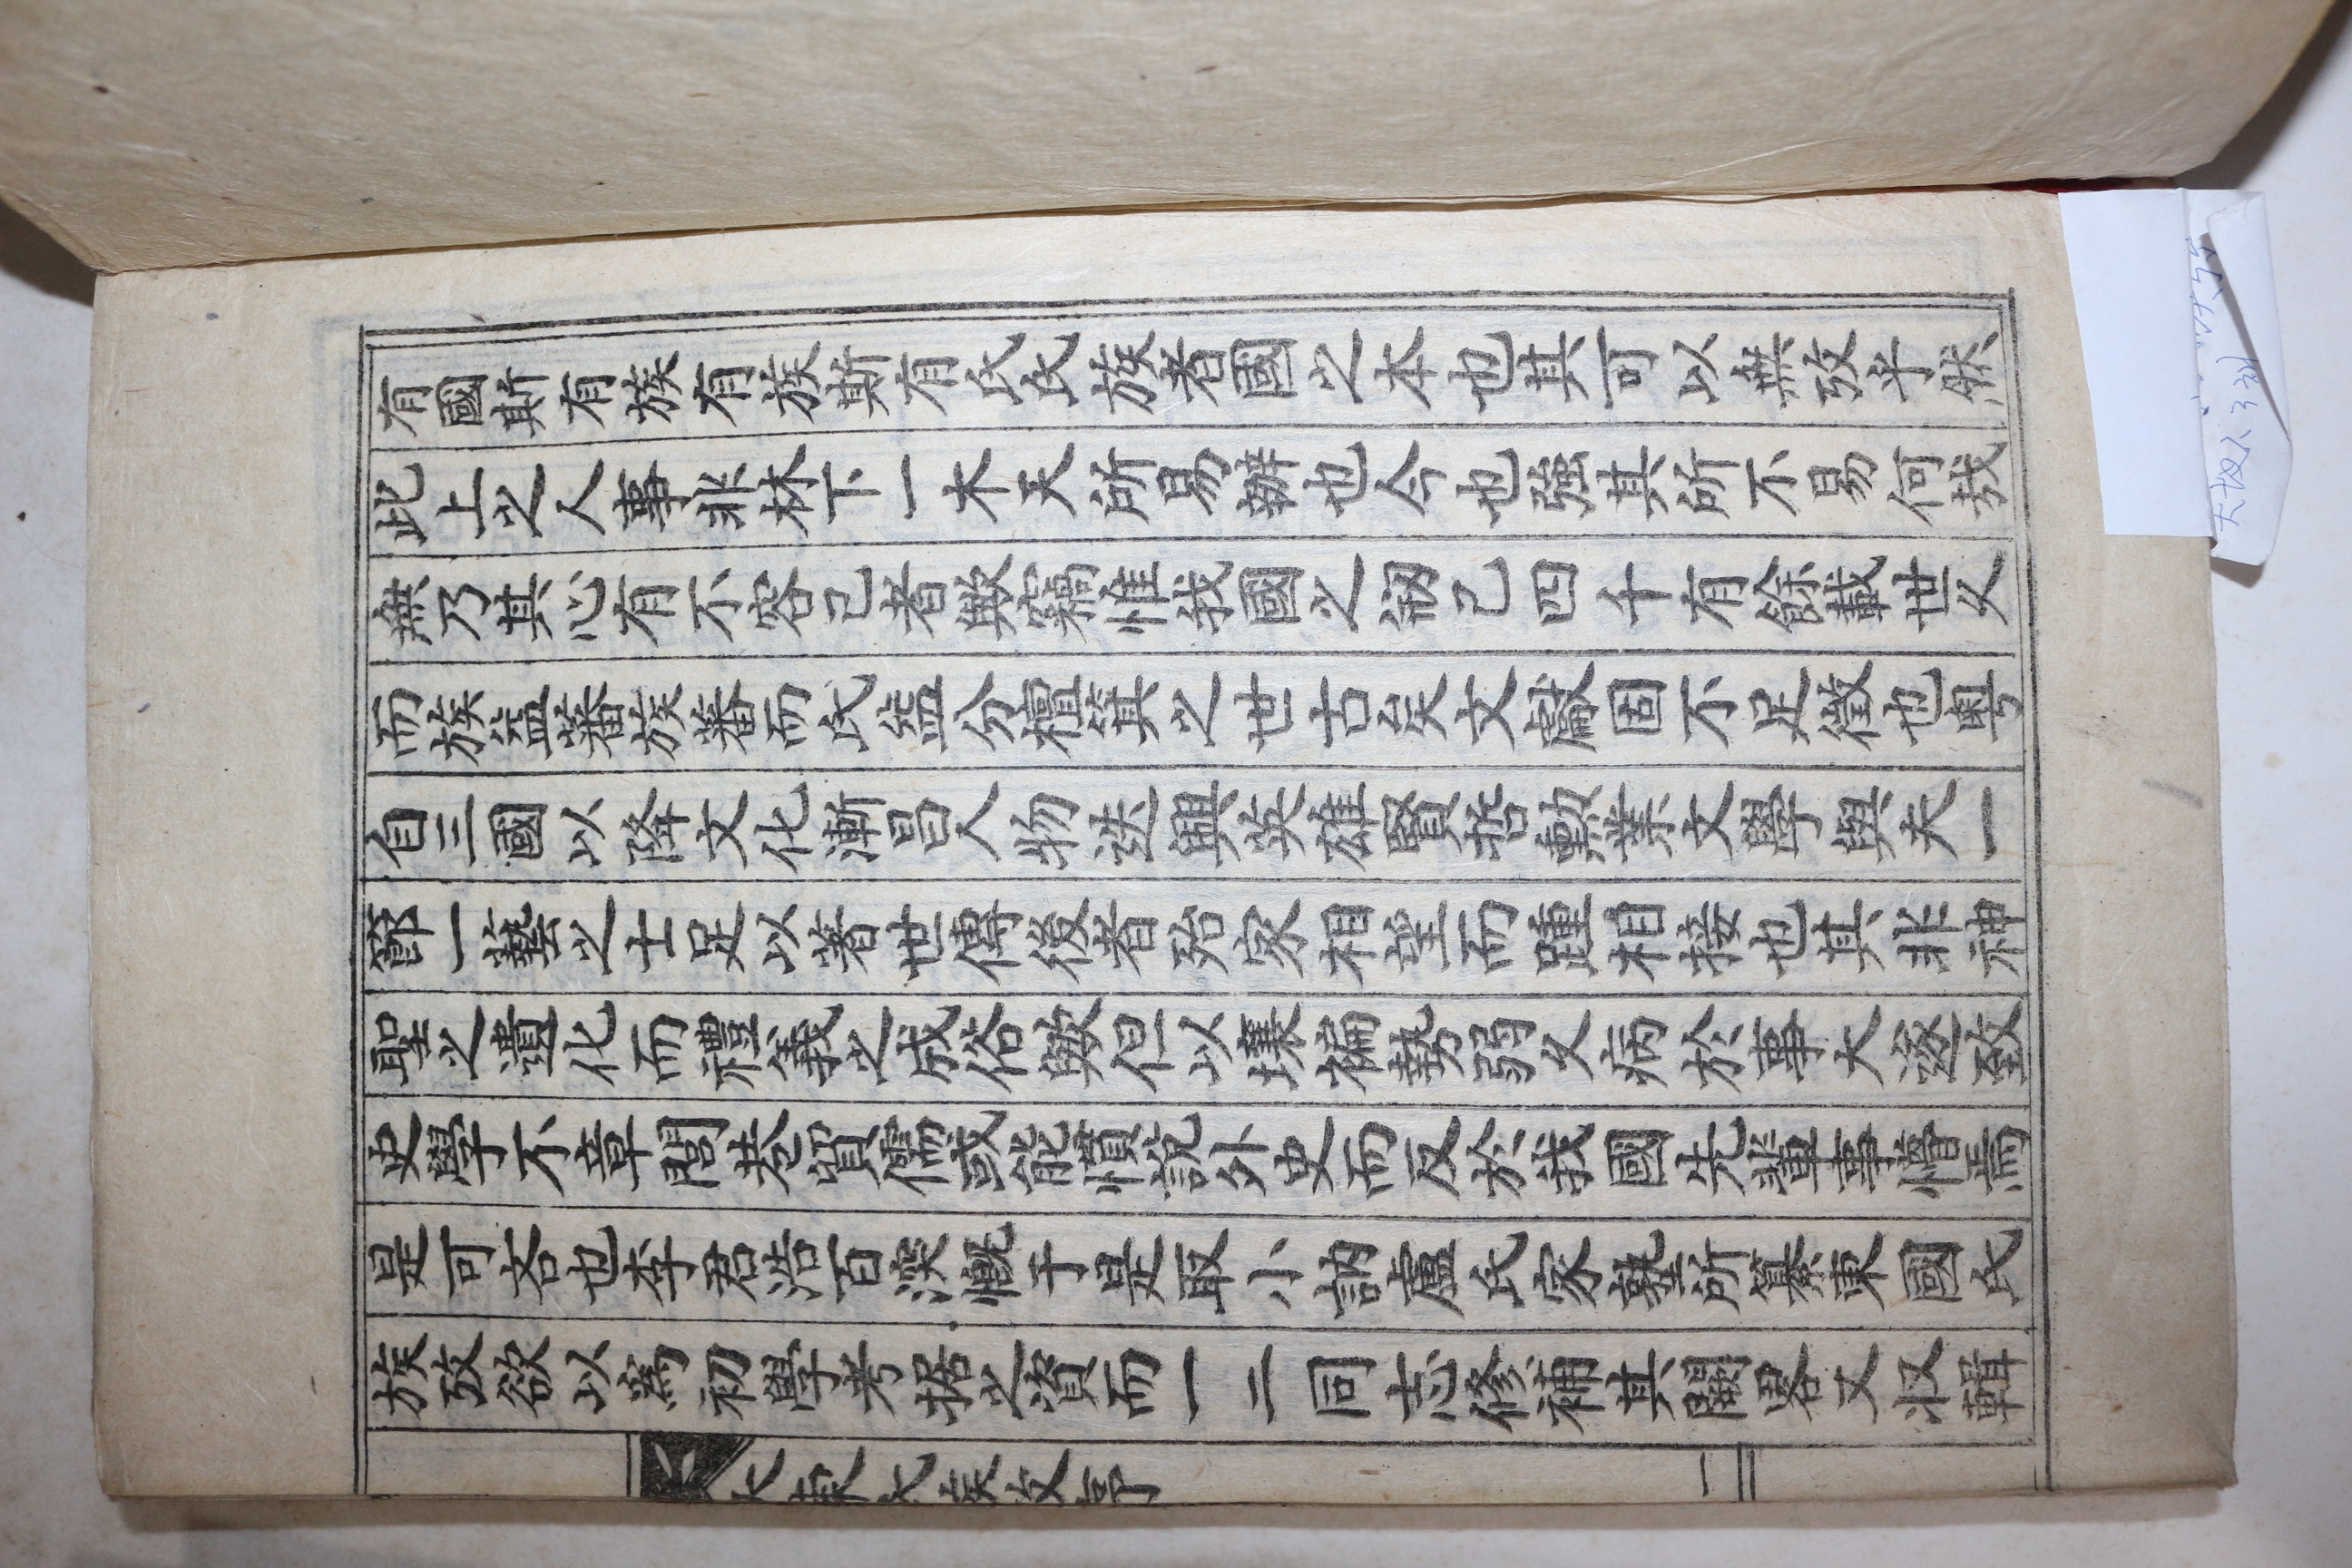 有國斯有族有族斯有氏氏族者國之本也其可以無攷乎然
此上之人事非林下一木天所易辦也今也強其所不易何哉
無乃其心有不容己者歟竊惟我國之刱己四千有餘載世久
而族益蕃族蕃而氏益分檀箕之世古矣文獻固不足徵也粤
自三國以降文化漸昌人物迭興英雄賢哲勳業文學與夫一
節一藝之士足以著世傳後者殆家相望而踵相接也其非神
聖之遺化而禮義之成俗歟但以壤褊勢弱久病於事大遂致
史學不章閭巷貿儒或能慣說外史而反於我國先輩事懵焉
是可吝也李君浩百深慨于是取小訥盧氏家塾所纂東國氏
族攷欲以爲初學考据之資而一二同志修補其闕畧又收輯
大東氏族攷序
一